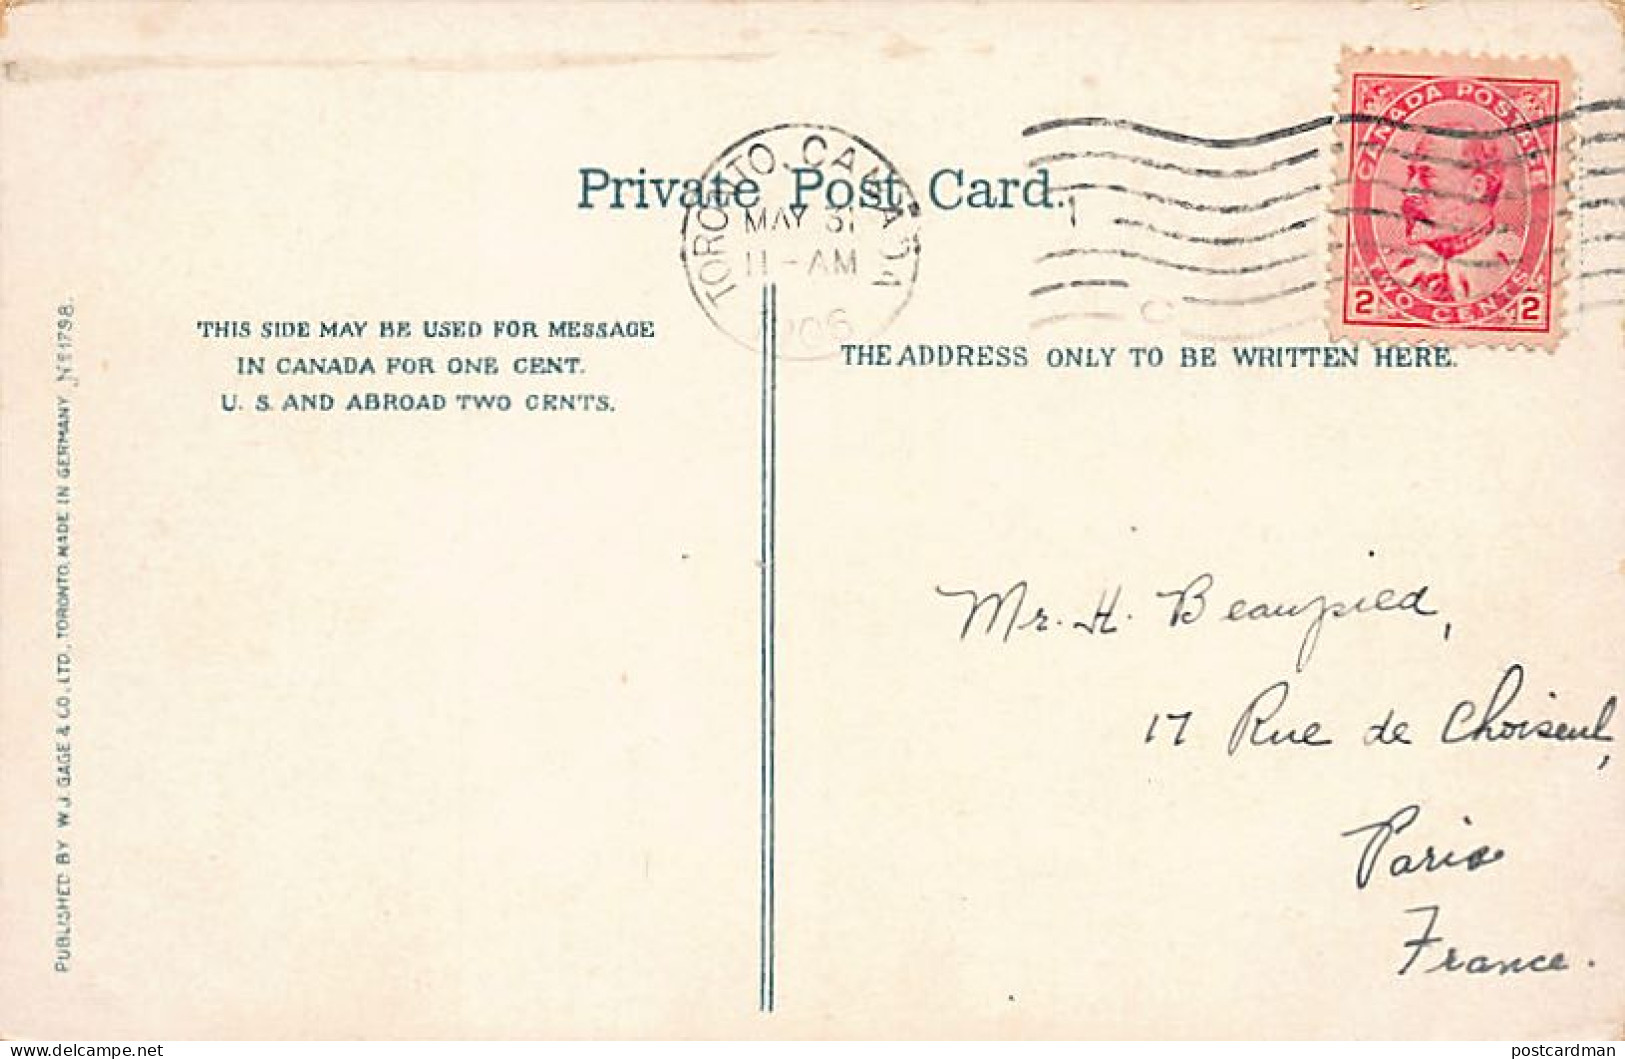 CANADA POSTAGE
TWO CENTS
2 2
TORONTO, CANADA
MAY 31
11-AM
1906
Private Post Card.
THIS SIDE MAY BE USED FOR MESSAGE
IN CANADA FOR ONE CENT.
U. S. AND ABROAD TWO CENTS.
THE ADDRESS ONLY TO BE WRITTEN HERE.
PUBLISHED BY W. J. GAGE & CO., LTD., TORONTO, MADE IN GERMANY Nº 1738.
Mr. H. Beaupied,
17 Rue de Choiseul,
Paris
France.
www.delcampe.net
postcardman